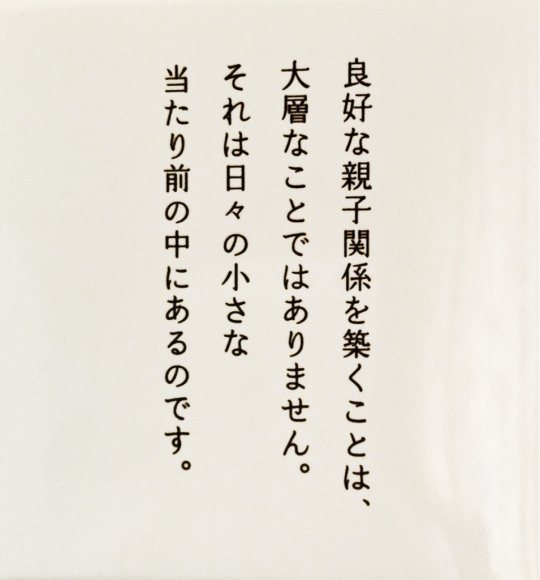 良好な親子関係を築くことは、
大層なことではありません。
それは日々の小さな
当たり前の中にあるのです。